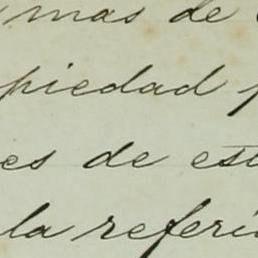 mas de
piedad
es de est
la referi